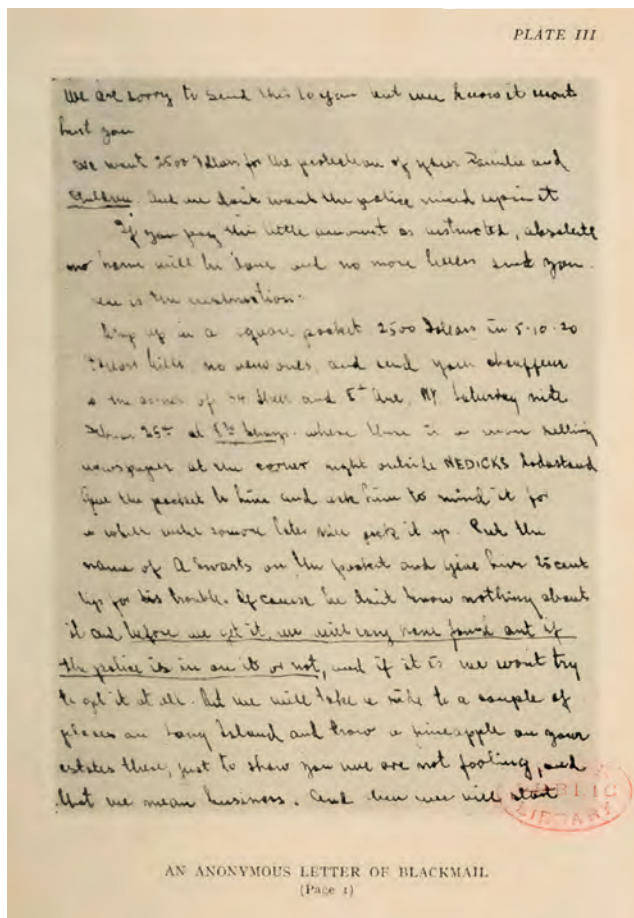 PLATE III
We are sorry to send this to you but wee know it wont
hurt you
we want 2500 Dollars for the protection of your Familie and
Children. But we dont want the police mixed up in it
If you pay this little amount as instructed, absolute
no harm will be done and no more letters send you.
is the instruction.
up in a square pocket 2500 Dollars in 5-10-20
Dollars bills, no new ones, and send your chauffeur
the corner of 34 Street and 8th Ave, NY. Saturday nite
25th at where there is a man selling
newspaper at the corner right outside NEDICKS Sodastand
Give the pocket to him and ask him to mind it for
a while until someone later will pick it up. Put the
name of A Swarts on the pocket and give him 25 cent
tip for his trouble. Of cause he dont know nothing about
it and before we get it, we will find out if
the police is in on it or not, and if it is we wont try
to get it at all. But we will take a ride to a couple of
places on Long Island and trow a pineapple on your
estates there, just to show you wee are not fooling, and
that we mean business. And then wee will start
PUBLIC
LIBRARY
AN ANONYMOUS LETTER OF BLACKMAIL
(Page 1)